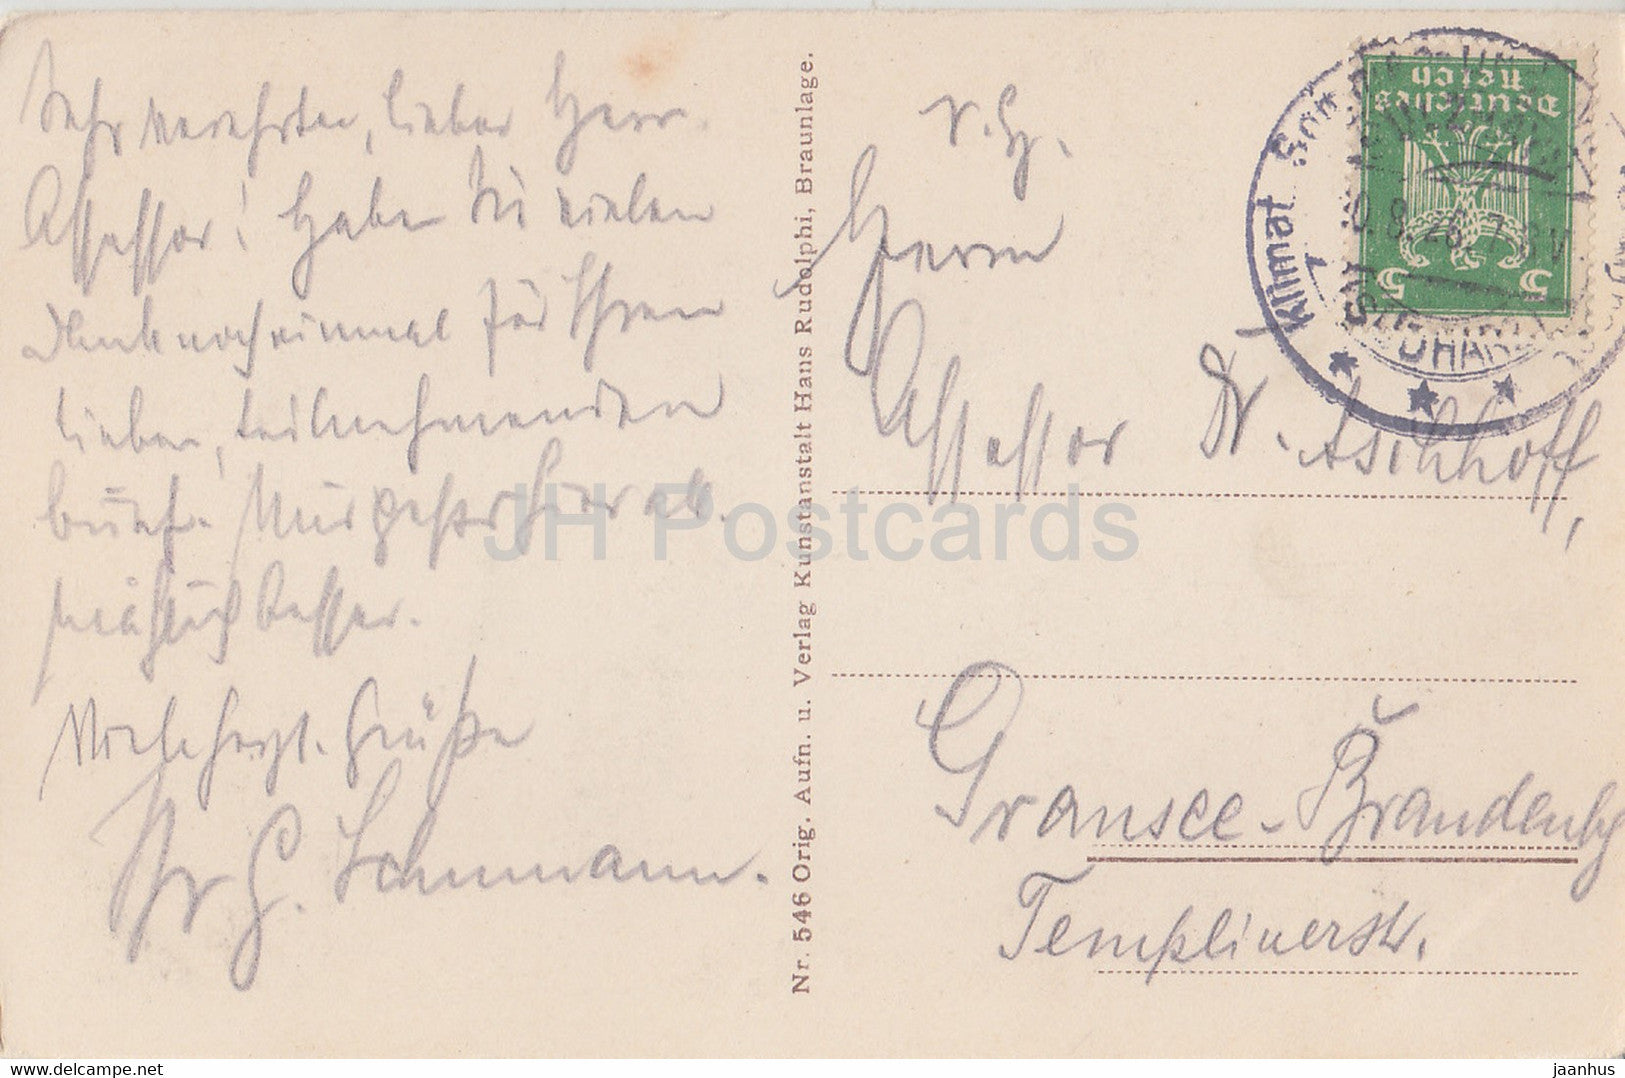 Sehr verehrter, lieber Herr
Assessor! Haben Sie vielen
Dank noch einmal für Ihren
lieben, teilnehmenden
Brief. Mir geht's hier ab.
besser.
Viele herzl. Grüße
Ihr G.
Nr. 546 Orig. Aufn. u. Verlag Kunstanstalt Hans Rudolphi, Braunlage.
Herrn
Assessor Dr. Aschhoff,
Gransee-Brandenbg
Templinerstr.
Deutsches
Reich
5 5
Klimat.
8.26.7-8V
JH Postcards
delcampe.net
jaanhus